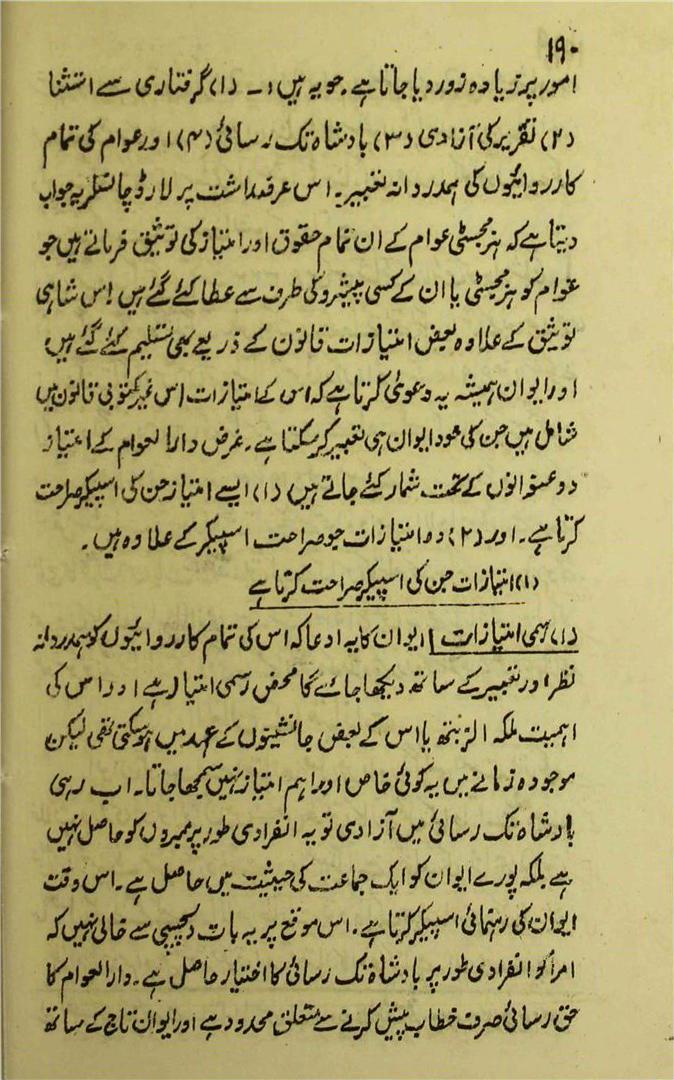 ۱۹۰
امور پر زیادہ زور دیا جاتا ہے۔ جو یہ ہیں :۔ (۱) گرفتاری سے استثنا
(۲) تقریر کی آزادی (۳) بادشاہ تک رسائی (۴) اور عوام کی تمام
کارروائیوں کی ہمدردانہ تعبیر۔ اس عرضداشت پر لارڈ چانسلر یہ جواب
دیتا ہے کہ ہز مجسٹی عوام کے ان تمام حقوق اور امتیاز کی توثیق فرماتے ہیں جو
عوام کو ہز مجسٹی یا ان کے کسی پیشرو کی طرف سے عطا کئے گئے ہیں اس شاہی
توثیق کے علاوہ بعض امتیازات قانون کے ذریعے بھی تسلیم کئے گئے ہیں
اور ایوان ہمیشہ یہ دعویٰ کرتا ہے کہ اس کے امتیازات اس غیر مکتوبی قانون میں
شامل ہیں جن کی خود ایوان ہی تعبیر کر سکتا ہے۔ غرض دارالعوام کے امتیاز
دو عنوانوں کے تحت شمار کئے جاتے ہیں (۱) ایسے امتیاز جن کی اسپیکر صراحت
کرتا ہے۔ اور (۲) وہ امتیازات جو صراحت اسپیکر کے علاوہ ہیں۔
(۱) امتیازات جن کی اسپیکر صراحت کرتا ہے
(۱) رسمی امتیازات | ایوان کا یہ ادعا کہ اس کی تمام کارروائیوں کو ہمدردانہ
نظر اور تعبیر کے ساتھ دیکھا جائے گا محض رسمی امتیاز ہے اور اس کی
اہمیت ملکہ الزبتھ یا اس کے بعض جانشینوں کے عہد میں ہو سکتی تھی لیکن
موجودہ زمانے میں یہ کوئی خاص اور اہم امتیاز نہیں سمجھا جاتا۔ اب رہی
بادشاہ تک رسائی میں آزادی تو یہ انفرادی طور پر ممبروں کو حاصل نہیں
ہے بلکہ پورے ایوان کو ایک جماعت کی حیثیت میں حاصل ہے۔ اس وقت
ایوان کی رہنمائی اسپیکر کرتا ہے۔ اس موقع پر یہ بات دلچسپی سے خالی نہیں کہ
امرا کو انفرادی طور پر بادشاہ تک رسائی کا اختیار حاصل ہے۔ دارالعوام کا
حق رسائی صرف خطاب پیش کرنے سے متعلق محدود ہے اور ایوان تاج کے ساتھ